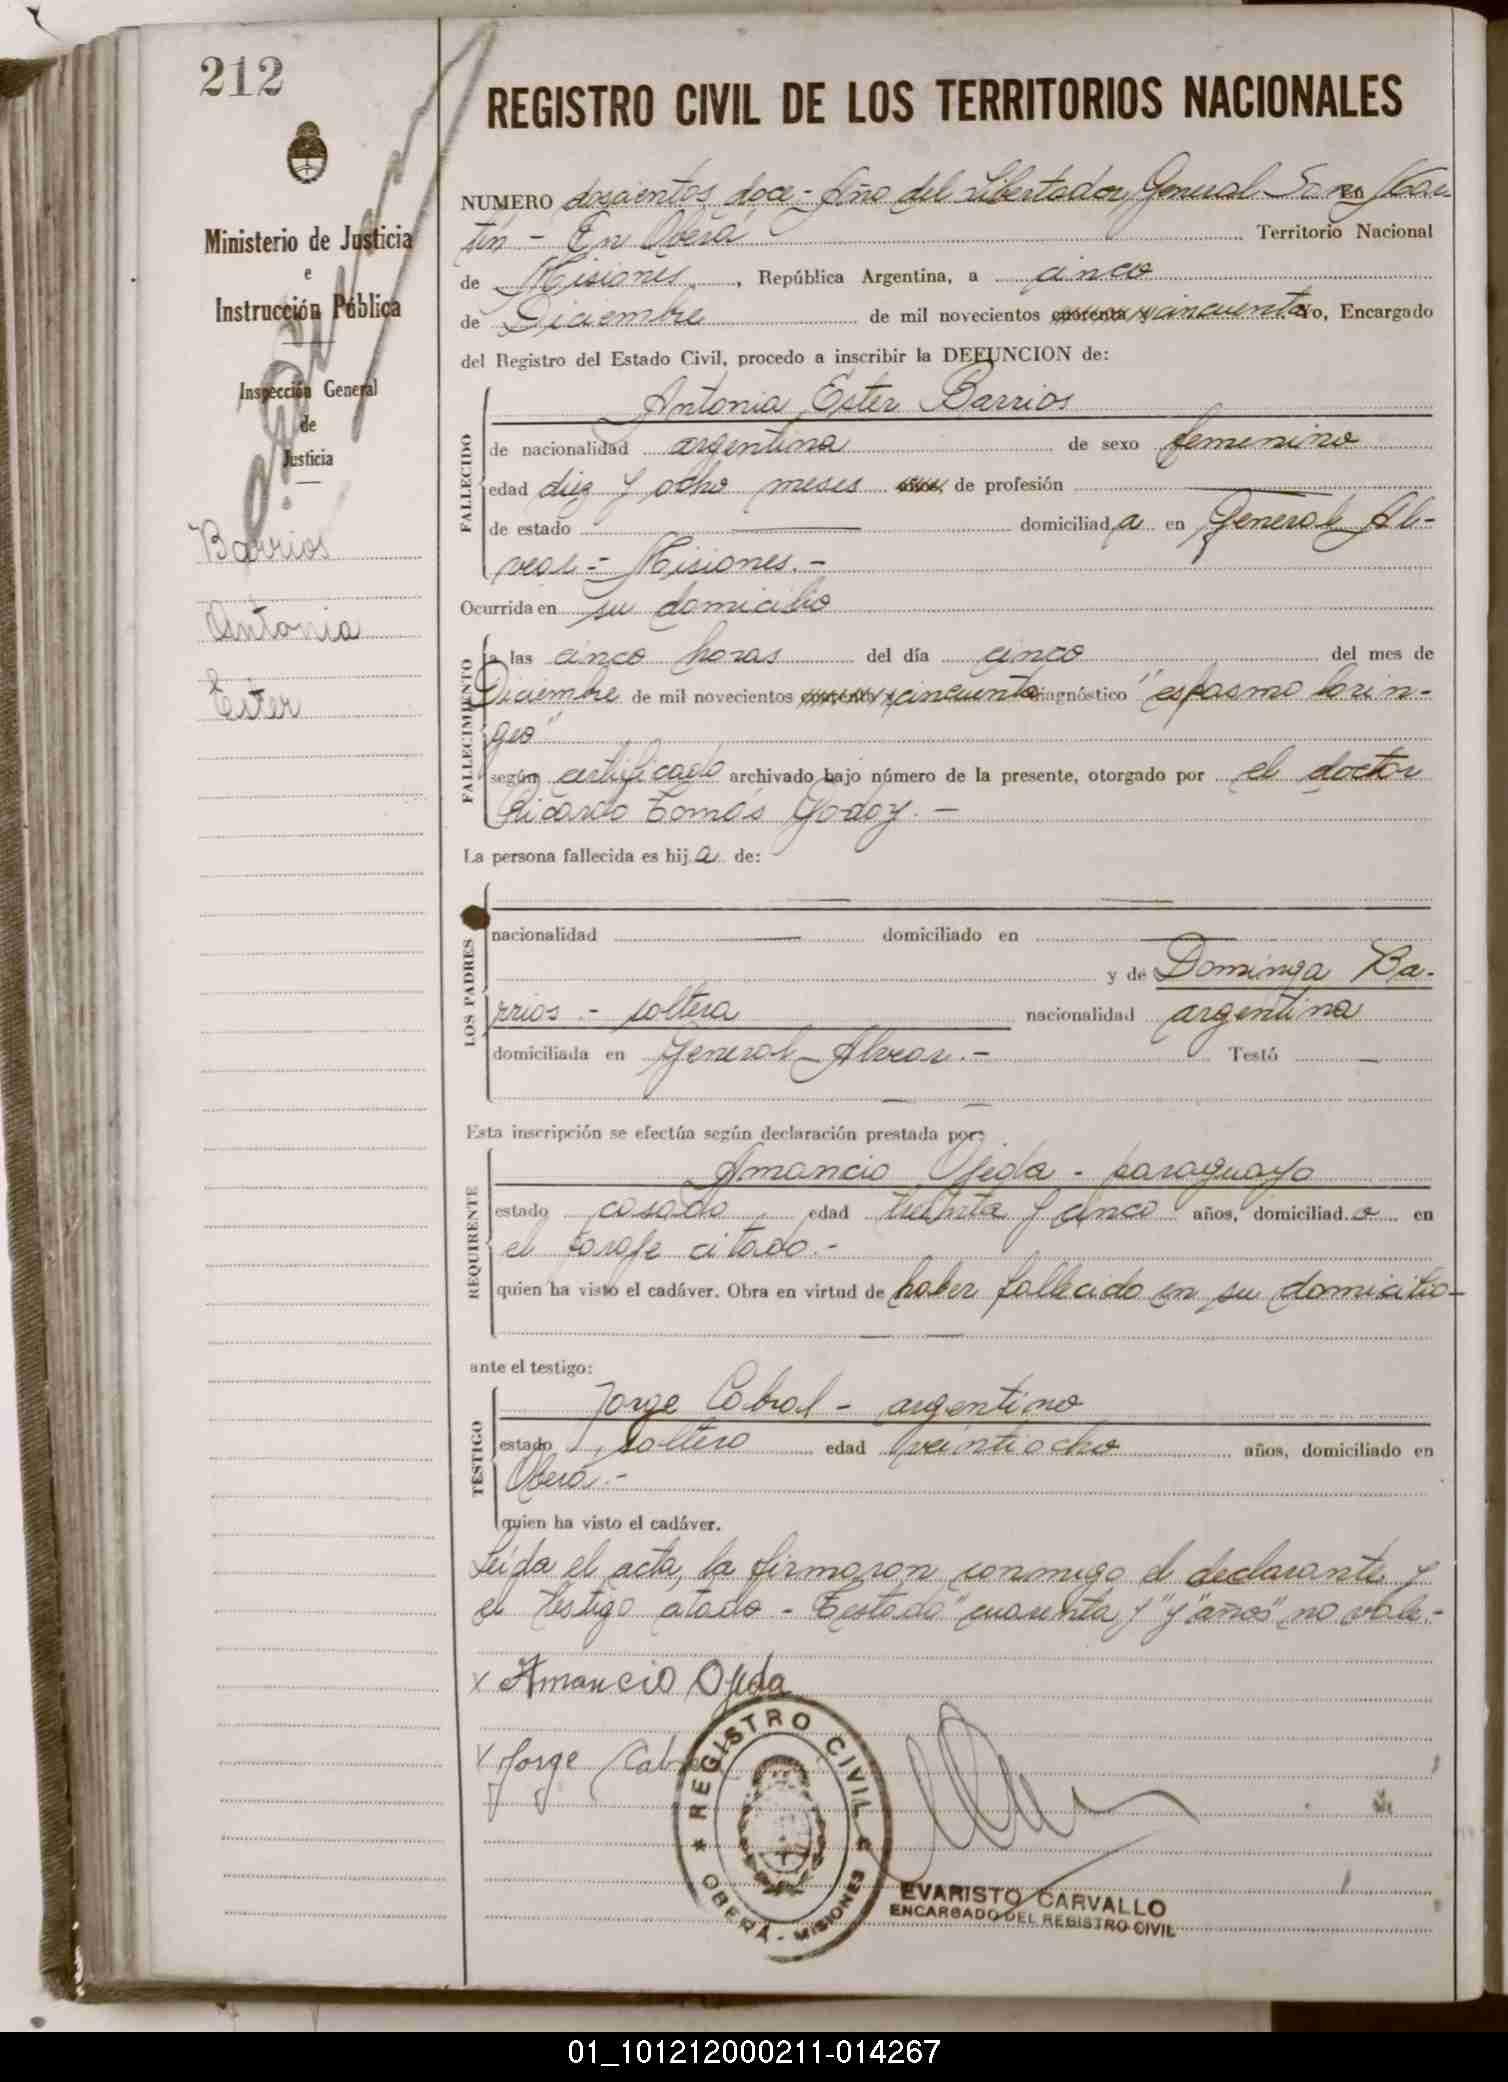 212
REGISTRO CIVIL DE LOS TERRITORIOS NACIONALES
Ministerio de Justicia
e
Instrucción Pública
Inspección General
de
Justicia
Barrios
Antonia
Ester
NUMERO doscientos doce - Año del Libertador General San Mar-
tín - En Oberá Territorio Nacional
de Misiones, República Argentina, a cinco
de Diciembre de mil novecientos cuarenta y cincuenta yo, Encargado
del Registro del Estado Civil, procedo a inscribir la DEFUNCION de:
FALLECIDO
Antonia Ester Barrios
de nacionalidad argentina de sexo femenino
edad diez y ocho meses años, de profesión —
de estado — domiciliada en General Al-
vear - Misiones.-
Ocurrida en su domicilio
FALLECIMIENTO
a las cinco horas del día cinco del mes de
Diciembre de mil novecientos cuarenta y cincuenta diagnóstico "espasmo larin-
geo"
según certificado archivado bajo número de la presente, otorgado por el doctor
Ricardo Tomás Godoy.-
La persona fallecida es hija de:
LOS PADRES
— —
nacionalidad — domiciliado en —
y de Dominga Ba-
rrios.- soltera nacionalidad argentina
domiciliada en General Alvear.- Testó —
— —
Esta inscripción se efectúa según declaración prestada por:
REQUIRENTE
Amancio Ojeda - paraguayo
estado casado edad treinta y cinco años, domiciliado en
el paraje citado.-
quien ha visto el cadáver. Obra en virtud de haber fallecido en su domicilio-
— —
ante el testigo:
TESTIGO
Jorge Cabral - argentino
estado soltero edad veintiocho años, domiciliado en
Oberá.-
quien ha visto el cadáver.
Leída el acta, la firmaron conmigo el declarante y
el testigo citado - Testado "cuarenta y" y "años" no vale.-
x Amancio Ojeda
x Jorge Cab
REGISTRO CIVIL
OBERÁ - MISIONES
EVARISTO CARVALLO
ENCARGADO DEL REGISTRO CIVIL
01_101212000211-014267